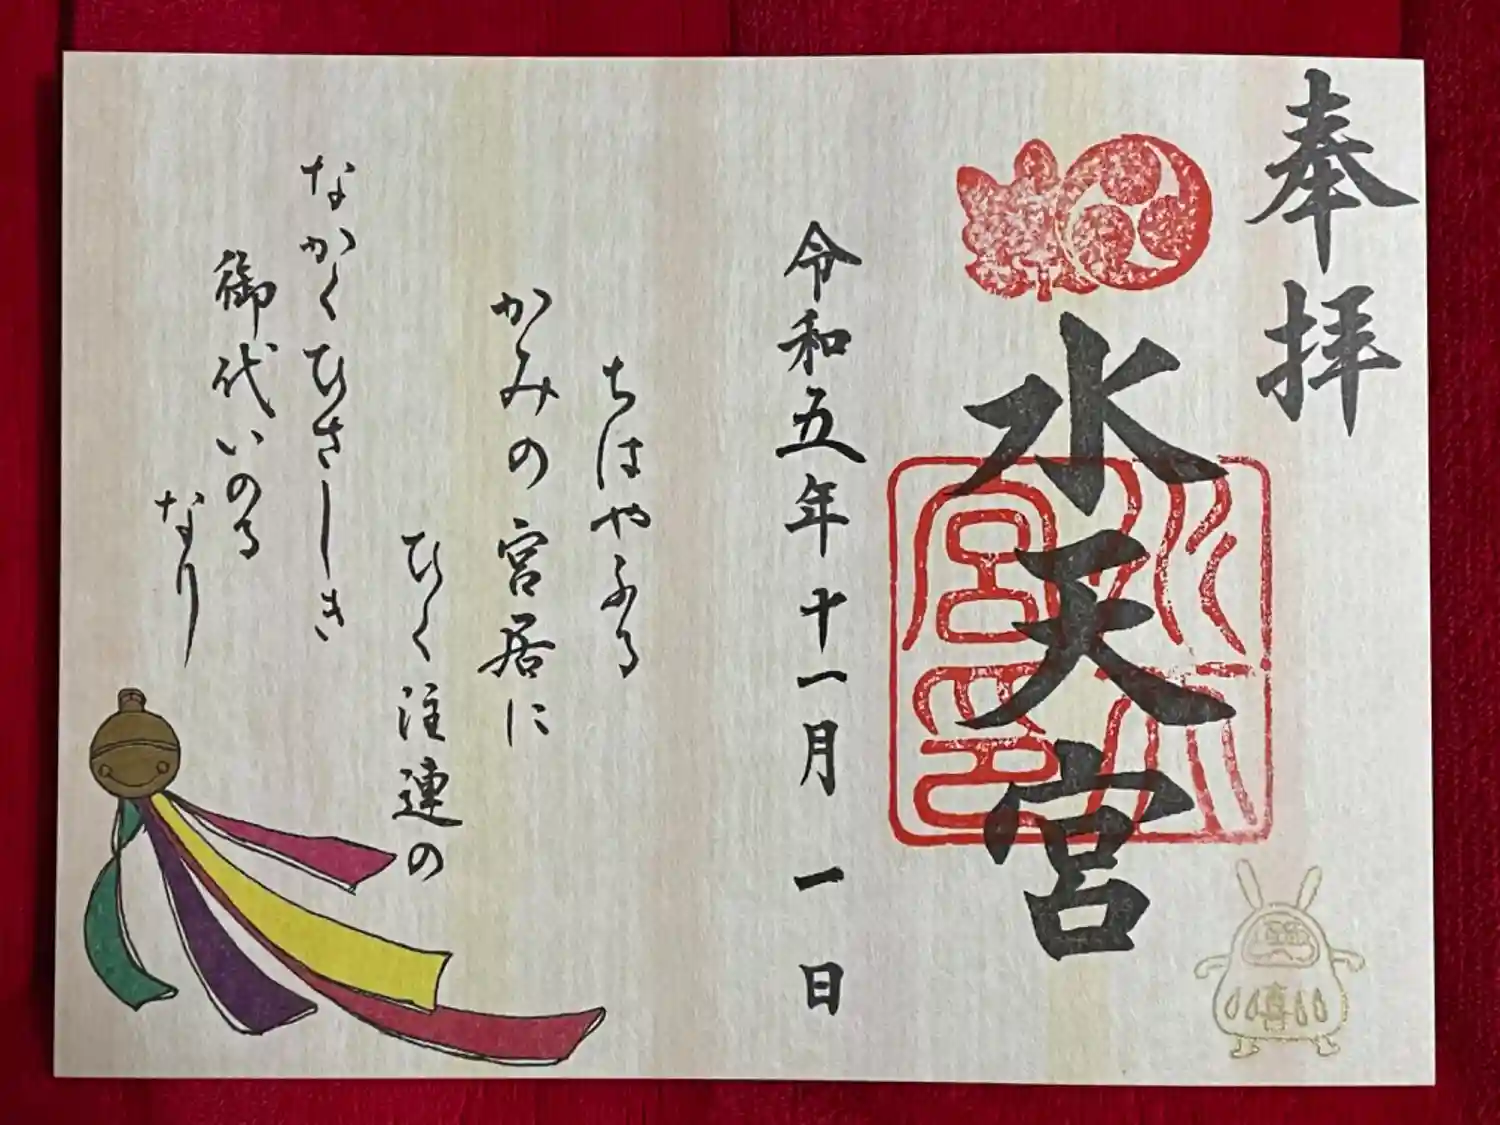 奉拝
水天宮
令和五年十一月一日
ちはやふる
かみの宮居に
ひく注連の
なかくひさしき
御代いのる
なり